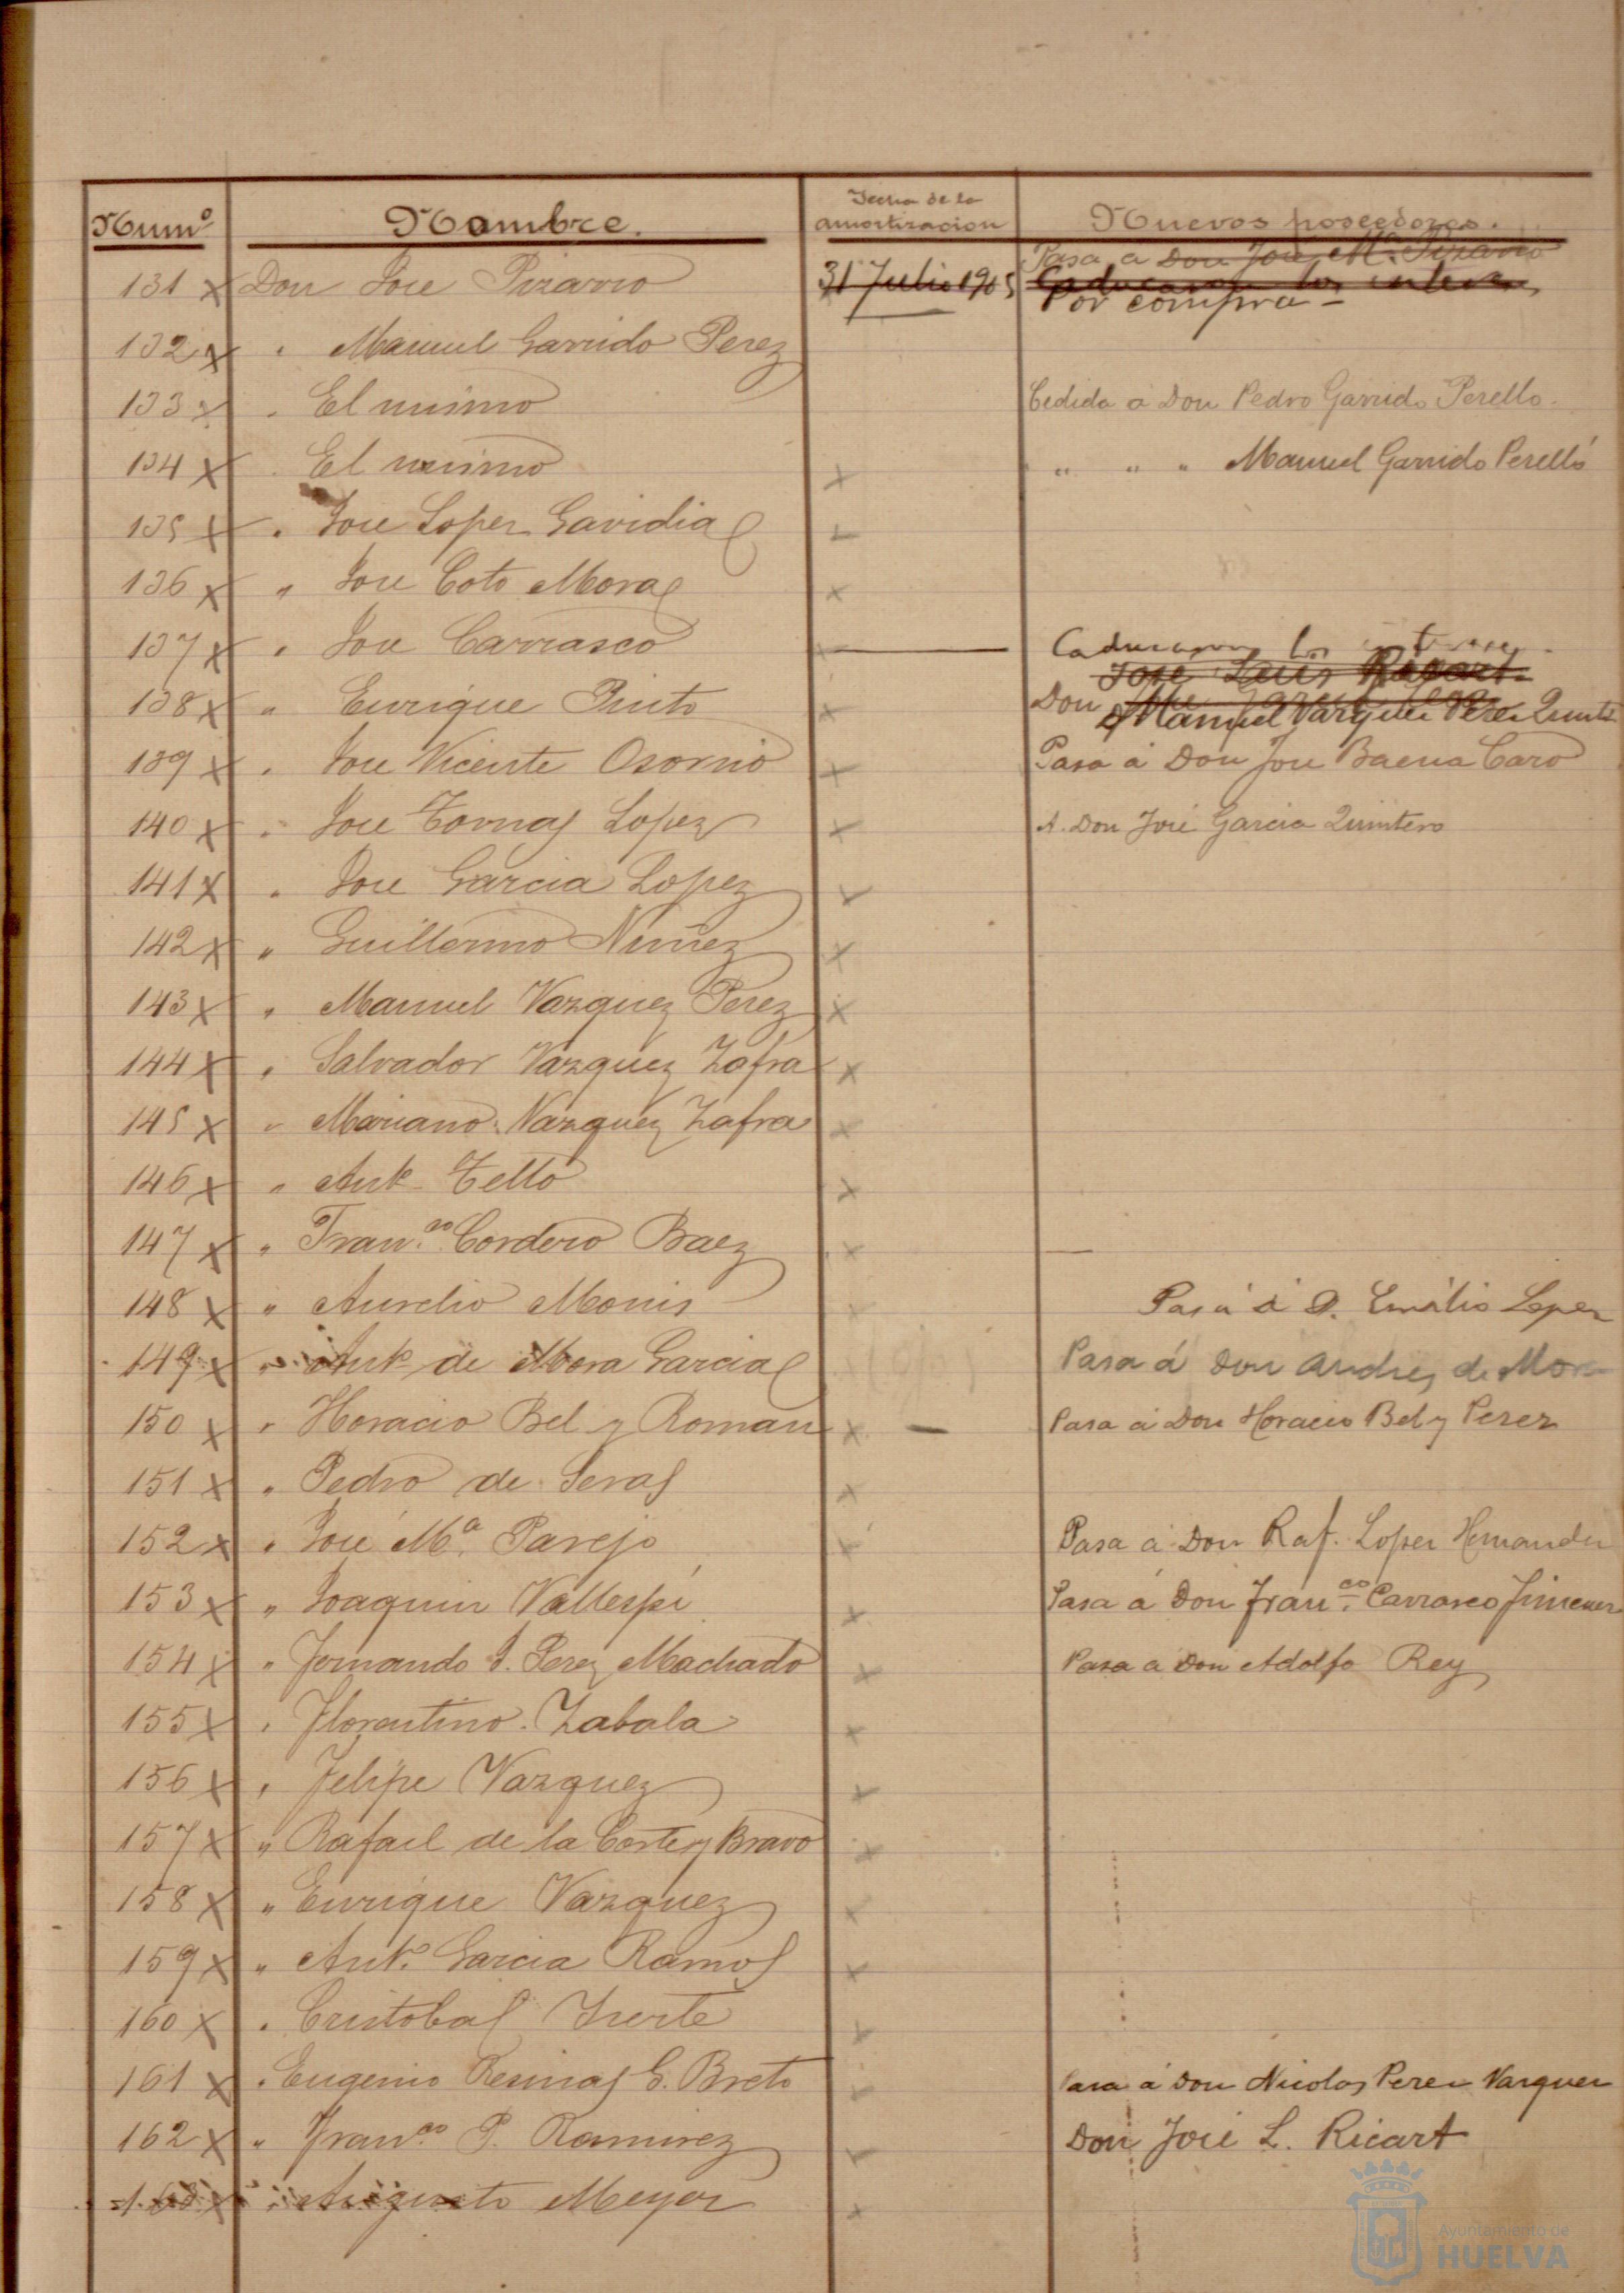 Numº Nombre. Fecha de la amortizacion Nuevos poseedores.
Pasa a Don José Mª Pizarro
131 x Don Jose Pizarro 31 Julio 1905 Caducaron los intereses
Por compra -
132 x " Manuel Garrido Perez
133 x " El mismo Cedida a Don Pedro Garrido Perello.
134 x El mismo x " " " Manuel Garrido Perelló
135 x " Jose Lopez Gavidia x
136 x " Jose Coto Mora x
137 x " Jose Carrasco Caducaron los intereses.
José Luis Ricart
138 x " Enrique Pinto x Don
Manuel Vazquez Perez Quint
139 x " Jose Vicente Osorno x Pasa á Don Jose Baena Caro
140 x " Jose Tornas Lopez x A. Don José Garcia Quintero
141 x " Jose Garcia Lopez x
142 x " Guillermo Nuñez x
143 x " Manuel Vazquez Perez x
144 x " Salvador Vazquez Zafra x
145 x " Mariano Vazquez Zafra x
146 x " Antº Tello x
147 x " Franco. Cordero Baez x —
148 x " Aurelio Monis x Pasa á D. Emilio Lopez
149 x " Antº de Mora Garcia Pasa á Don Andres de Mora
150 x " Horacio Bel y Roman x — Pasa á Don Horacio Bel y Perez
151 x " Pedro de Seras x
152 x " José Mª. Parejo x Pasa á Don Raf. Lopez Hernandez
153 x " Joaquin Vallespí x Pasa á Don Franco. Carrasco Jimenez
154 x " Fernando J. Perez Machado x Pasa a Don Adolfo Rey
155 x " Florentino Zabala x
156 x " Felipe Vazquez x
157 x " Rafael de la Corte y Bravo x
158 x " Enrique Vazquez x
159 x " Antº. Garcia Ramos x
160 x " Cristobal x
161 x " Eugenio Resinas G. Breto x Pasa á Don Nicolas Perez Vazquez
162 x " Franco. P. Ramirez x Don José L. Ricart
163 x " Augusto Meyer x
Ayuntamiento de
HUELVA